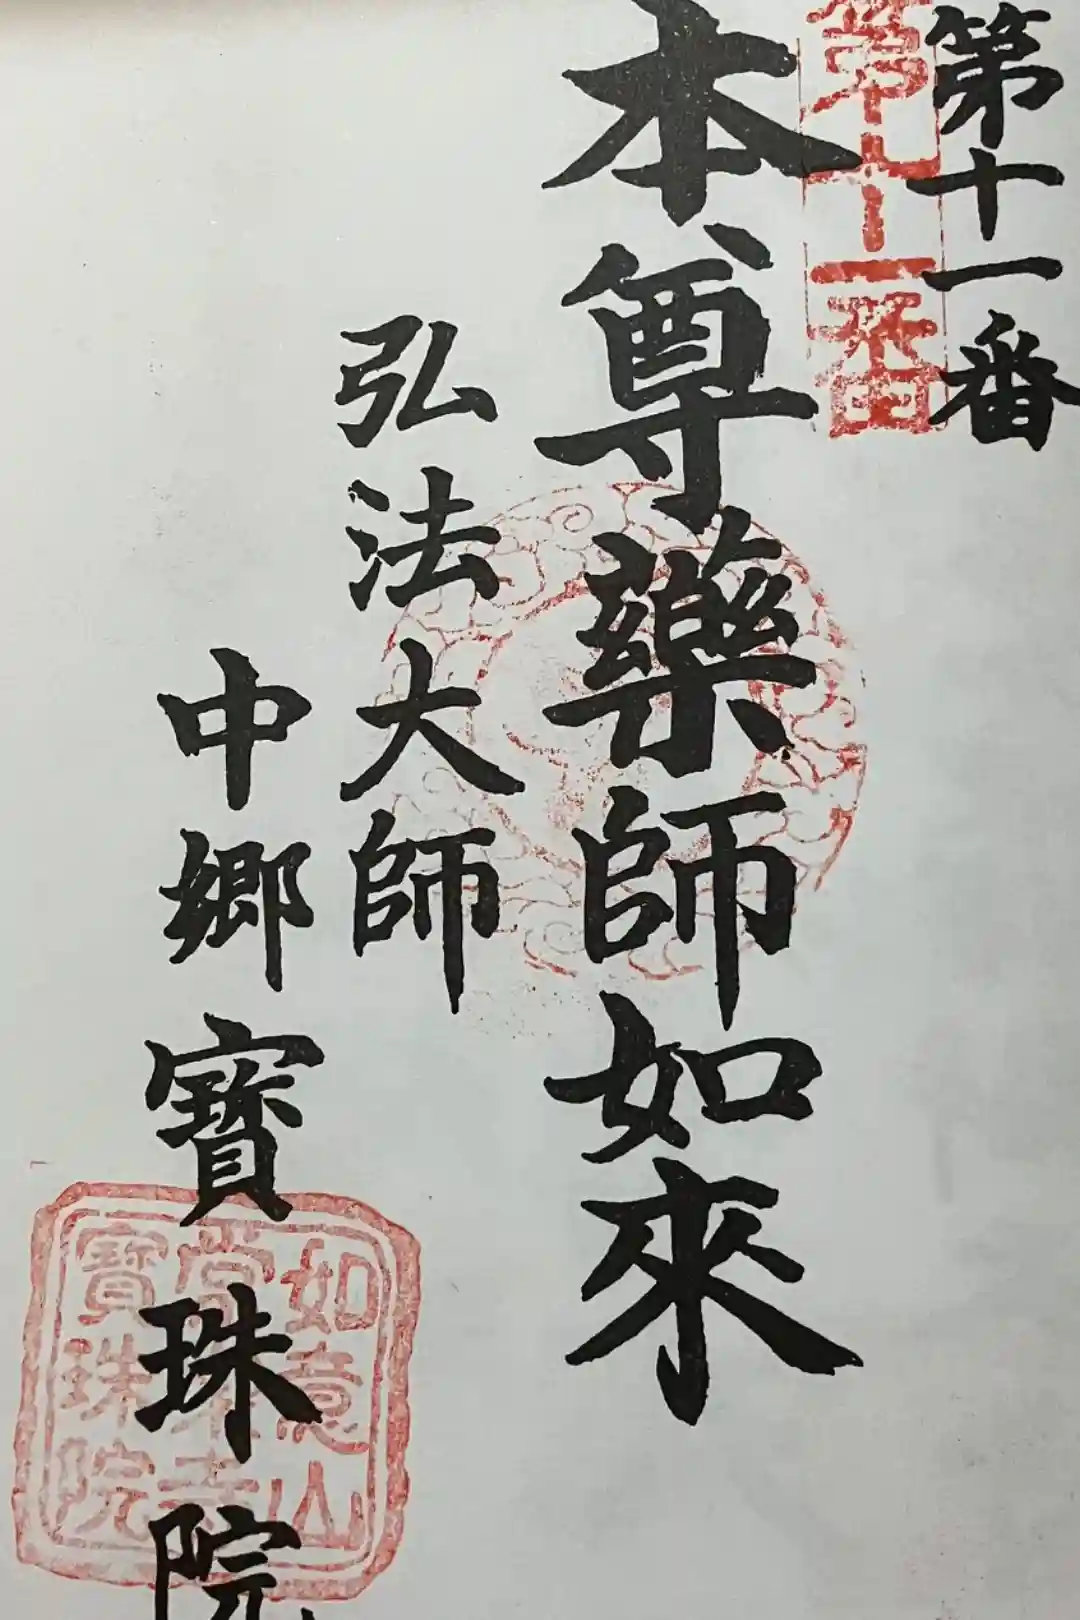 第十一番
第十一番
本尊藥師如來
弘法大師
中鄉寶珠院
如意山
寶珠院